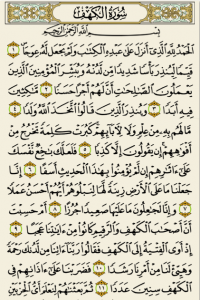 سُورَةُ الْكَهْفِ
بِسْمِ اللَّهِ الرَّحْمَٰنِ الرَّحِيمِ
الْحَمْدُ لِلَّهِ الَّذِي أَنزَلَ عَلَىٰ عَبْدِهِ الْكِتَابَ وَلَمْ يَجْعَل لَّهُ عِوَجًا ۜ ١
قَيِّمًا لِّيُنذِرَ بَأْسًا شَدِيدًا مِّن لَّدُنْهُ وَيُبَشِّرَ الْمُؤْمِنِينَ الَّذِينَ
يَعْمَلُونَ الصَّالِحَاتِ أَنَّ لَهُمْ أَجْرًا حَسَنًا ٢ مَّاكِثِينَ
فِيهِ أَبَدًا ٣ وَيُنذِرَ الَّذِينَ قَالُوا اتَّخَذَ اللَّهُ وَلَدًا ٤
مَّا لَهُم بِهِ مِنْ عِلْمٍ وَلَا لِآبَائِهِمْ ۚ كَبُرَتْ كَلِمَةً تَخْرُجُ مِنْ
أَفْوَاهِهِمْ ۚ إِن يَقُولُونَ إِلَّا كَذِبًا ٥ فَلَعَلَّكَ بَاخِعٌ نَّفْسَكَ
عَلَىٰ آثَارِهِمْ إِن لَّمْ يُؤْمِنُوا بِهَٰذَا الْحَدِيثِ أَسَفًا ٦ إِنَّا
جَعَلْنَا مَا عَلَى الْأَرْضِ زِينَةً لَّهَا لِنَبْلُوَهُمْ أَيُّهُمْ أَحْسَنُ عَمَلًا
٧ وَإِنَّا لَجَاعِلُونَ مَا عَلَيْهَا صَعِيدًا جُرُزًا ٨ أَمْ حَسِبْتَ
أَنَّ أَصْحَابَ الْكَهْفِ وَالرَّقِيمِ كَانُوا مِنْ آيَاتِنَا عَجَبًا ٩
إِذْ أَوَى الْفِتْيَةُ إِلَى الْكَهْفِ فَقَالُوا رَبَّنَا آتِنَا مِن لَّدُنكَ رَحْمَةً
وَهَيِّئْ لَنَا مِنْ أَمْرِنَا رَشَدًا ١٠ فَضَرَبْنَا عَلَىٰ آذَانِهِمْ فِي
الْكَهْفِ سِنِينَ عَدَدًا ١١ ثُمَّ بَعَثْنَاهُمْ لِنَعْلَمَ أَيُّ الْحِزْبَيْنِ